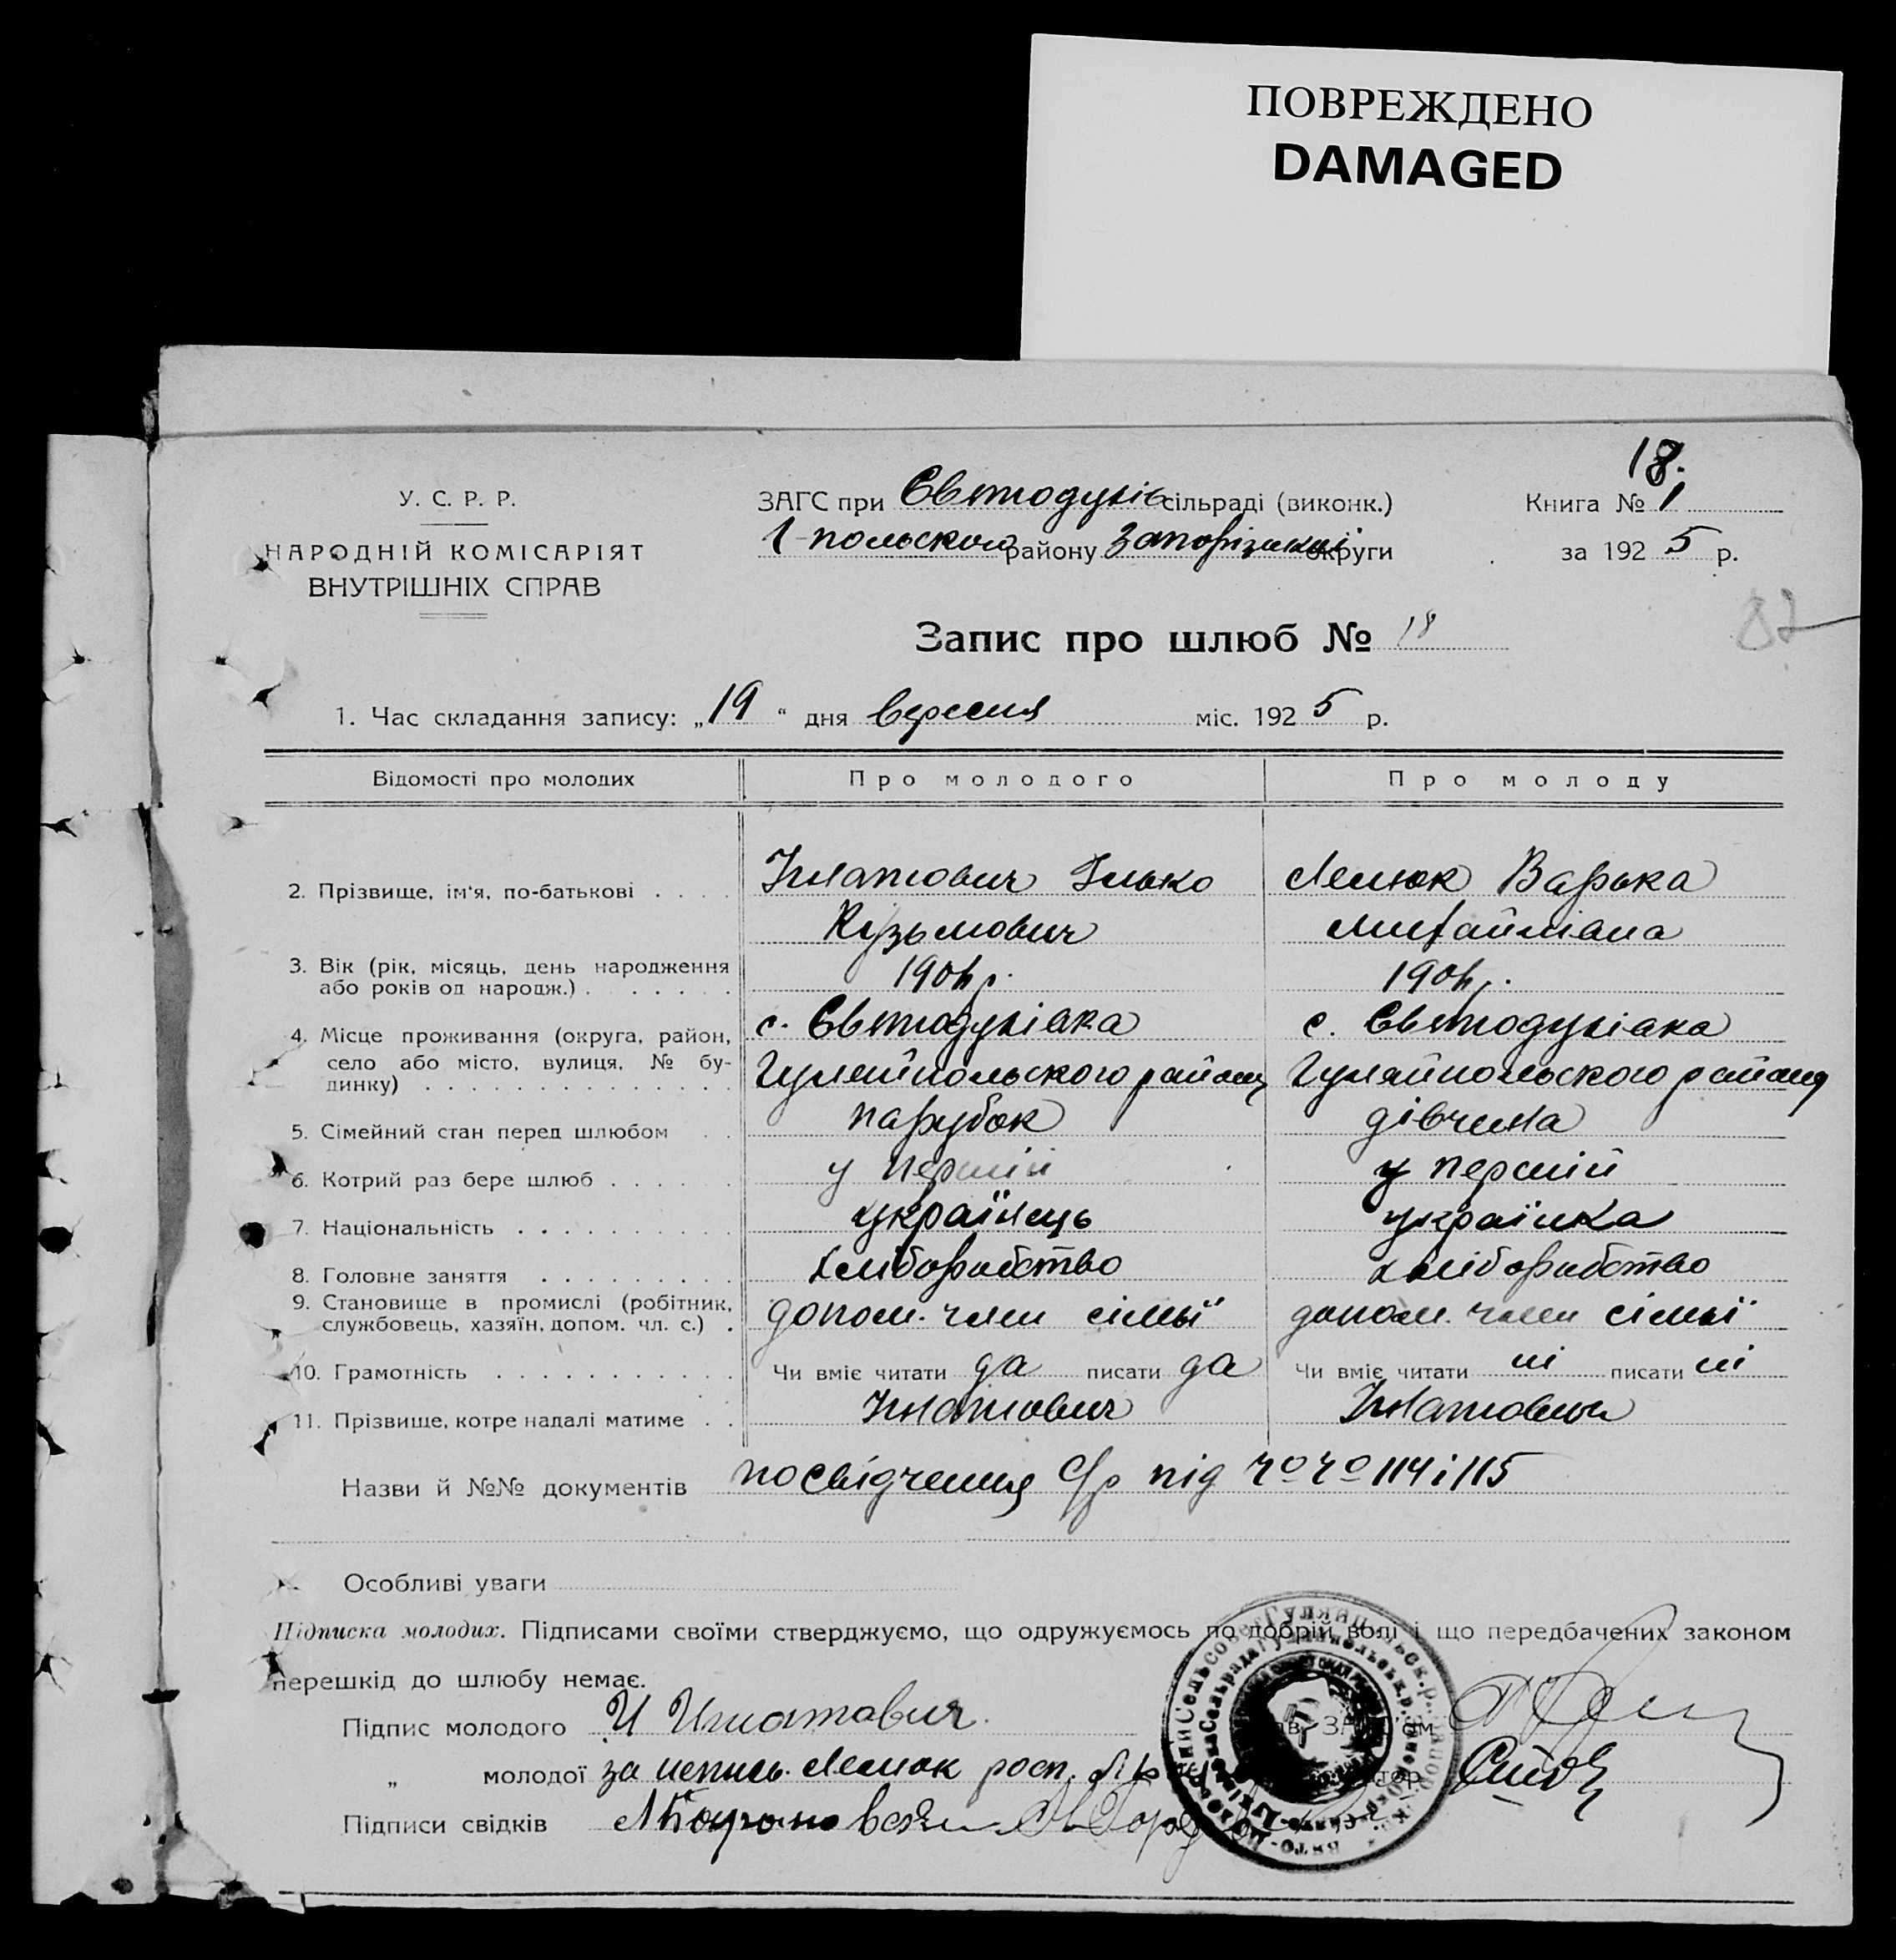 ПОВРЕЖДЕНО
DAMAGED
18.
У. С. Р. Р.
НАРОДНІЙ КОМІСАРІЯТ
ВНУТРІШНІХ СПРАВ
ЗАГС при Свтодухів сільраді (виконк.)
Г-польского району Запорізької округи
Книга № 1
за 1925 р.
82
Запис про шлюб № 18
1. Час складання запису: „19“ дня вересня міс. 1925 р.
Відомості про молодих Про молодого Про молоду
2. Прізвище, ім'я, по-батькові . . . . Ігнатович Ілько Лемюк Варька
Кузьмович Михайлівна
3. Вік (рік, місяць, день народження
або років од народж.) . . . . . . 1904 р. 1904 р.
4. Місце проживання (округа, район,
село або місто, вулиця, № бу-
динку) . . . . . . . . . . . . .
с. Свтодухівка с. Святодухівка
Гуляйпольского району Гуляйпольского району
5. Сімейний стан перед шлюбом . . парубок дівчина
6. Котрий раз бере шлюб . . . . . . у перший у перший
7. Національність . . . . . . . . . . українець українка
8. Головне заняття . . . . . . . . . хліборобство хліборобство
9. Становище в промислі (робітник,
службовець, хазяїн, допом. чл. с.) . допом. член сімьї допом. член сімьї
10. Грамотність . . . . . . . . . . . Чи вміє читати да писати да Чи вміє читати ні писати ні
11. Прізвище, котре надалі матиме . . Ігнатович Ігнатович
Назви й №№ документів посвідчення С/р під чо чо 114 і 115
Особливі уваги
Підписка молодих. Підписами своїми стверджуємо, що одружуємось по добрій волі і що передбачених законом
перешкід до шлюбу немає.
Підпис молодого И Игнатович
„ молодої за непись. Лемюк росп.
Підписи свідків